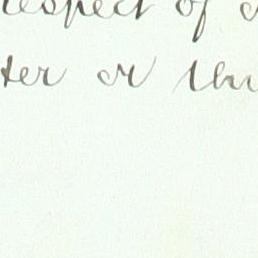 respect of
ter or the